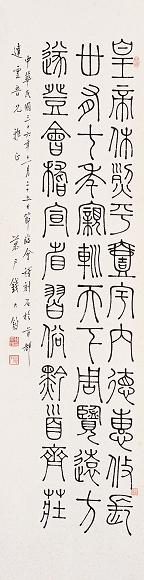 皇帝休烈平壹宇內德惠攸長
卅有七年親巡天下周覽遠方
遂登會稽宣省習俗黔首齊莊
中華民國三六年十二月二十五日節臨會稽刻石於首都
達雲吾兄雅正
慕尹錢大鈞